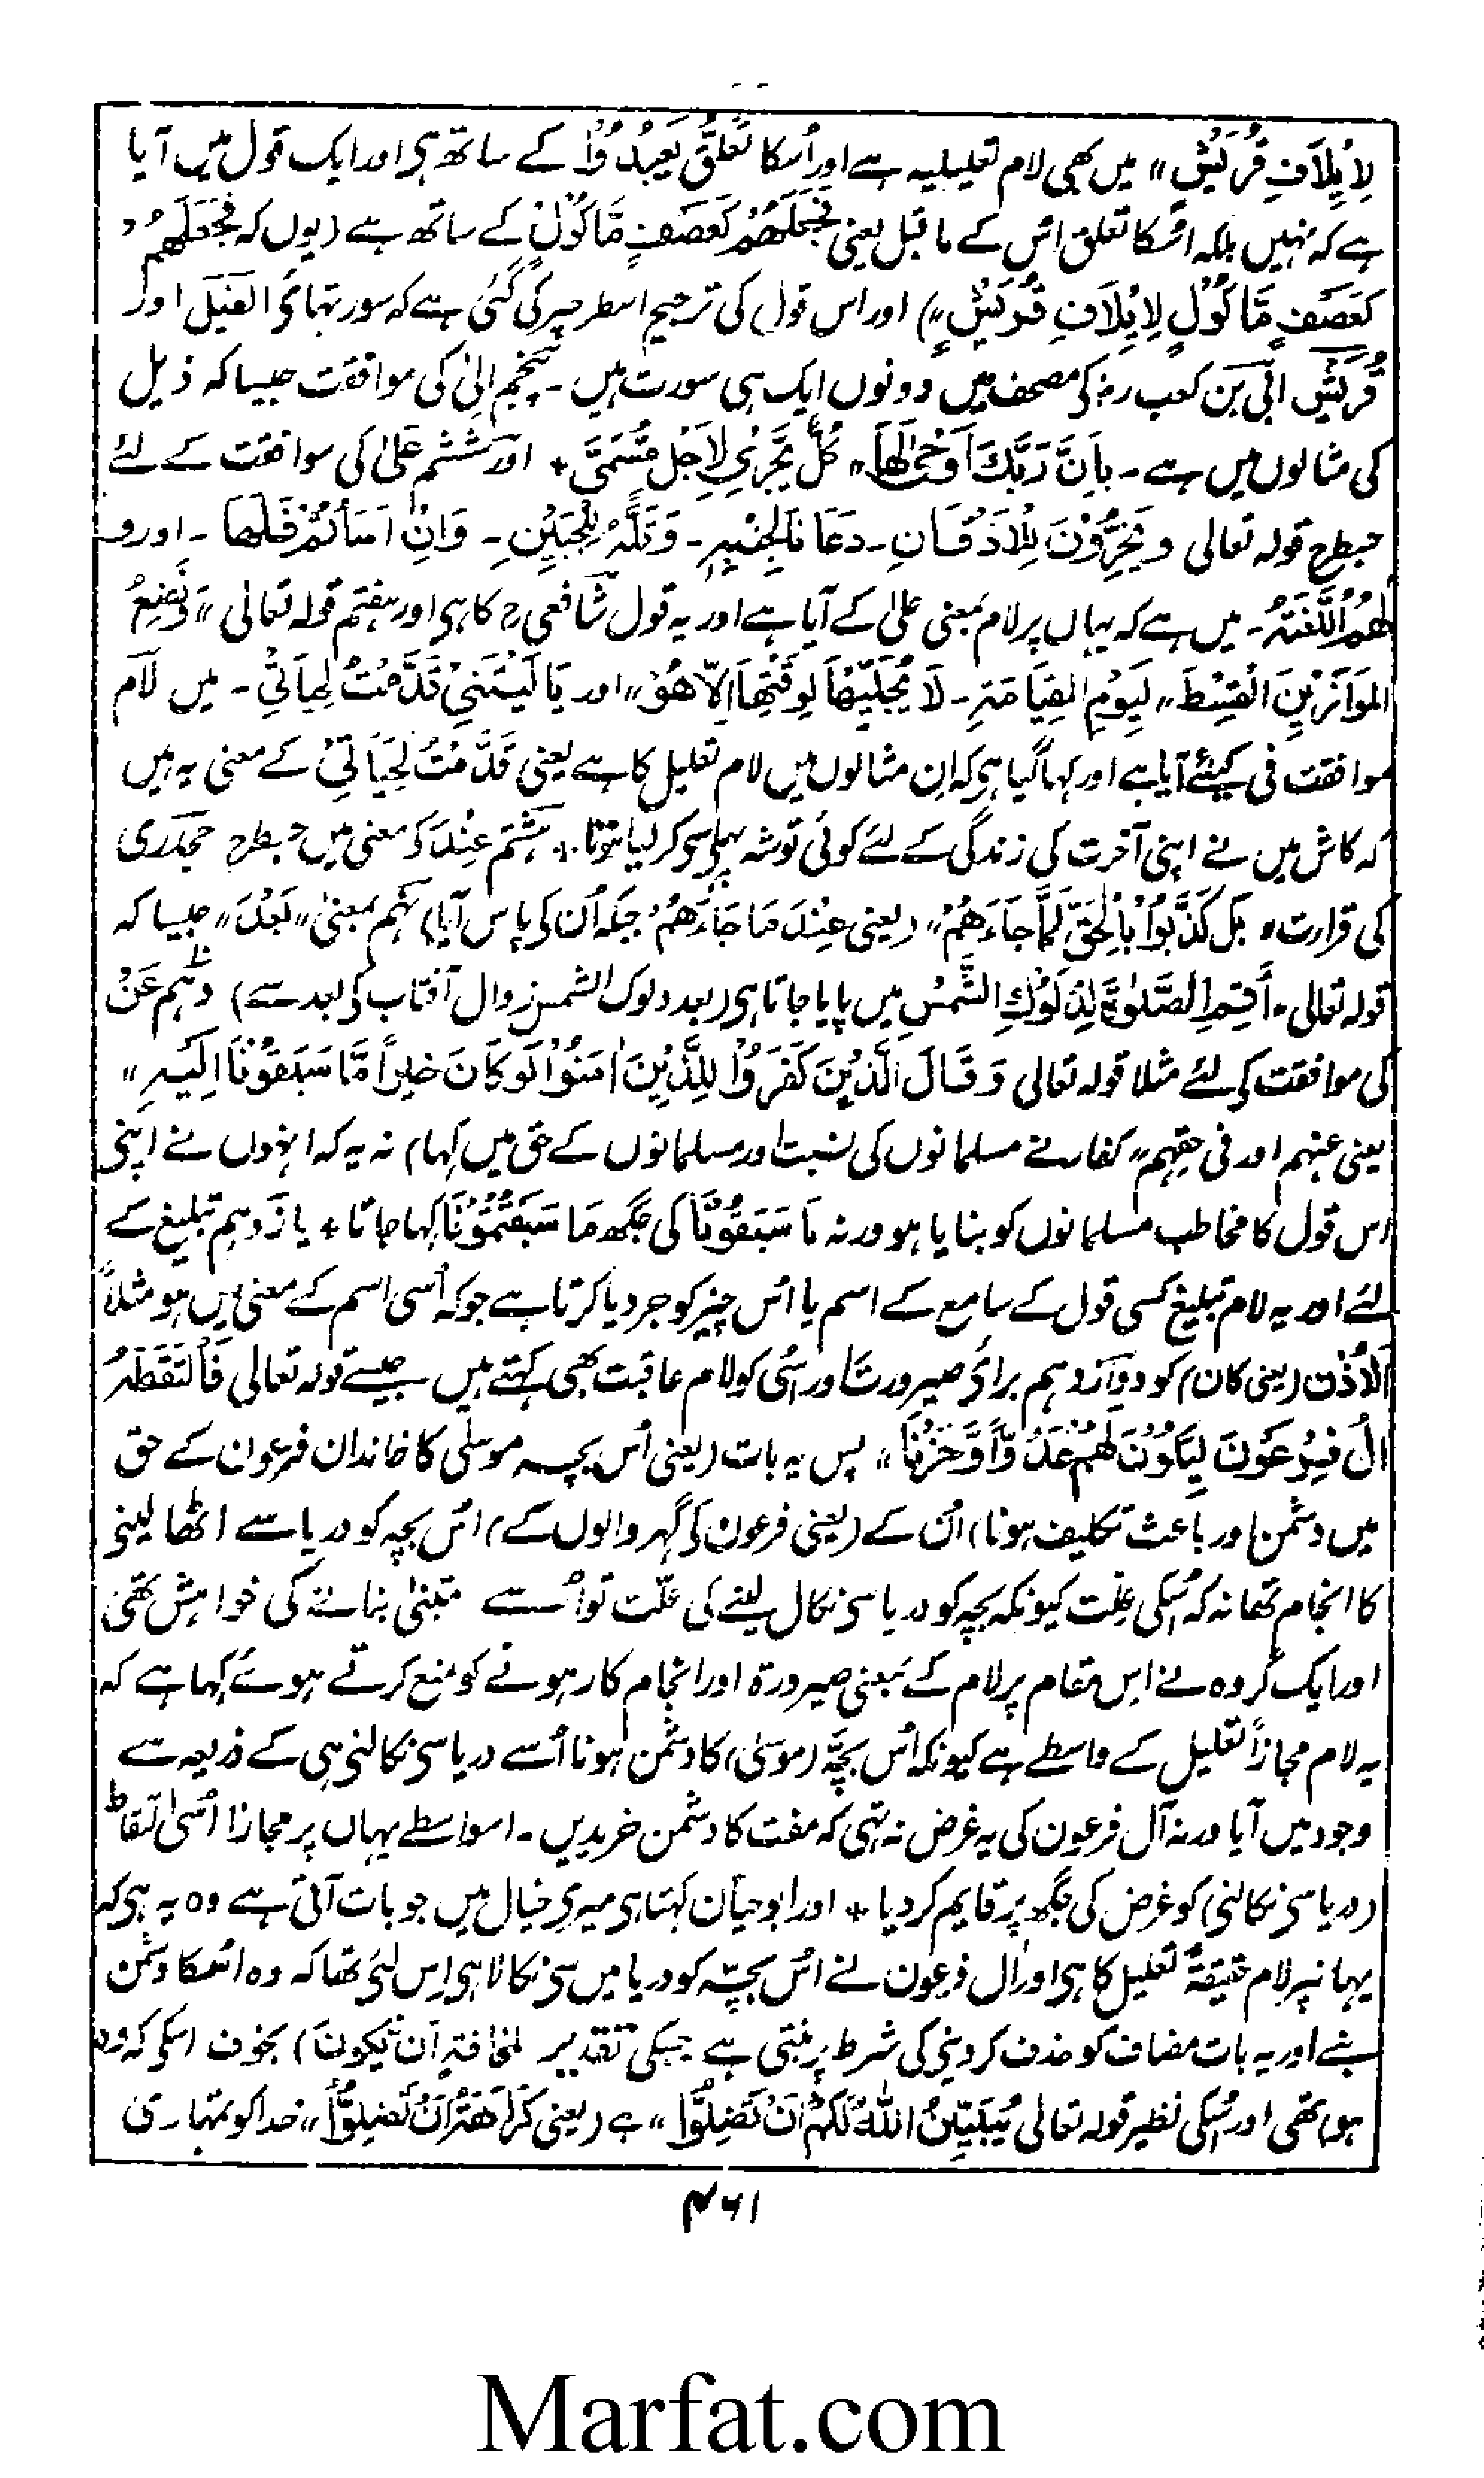 لِاِیْلَافِ قُرَیْشٍ" میں بھی لام تعلیلیہ ہے اور اُسکا تعلق یَعْبُدُوْا کے ساتھ ہی اور ایک قول میں آیا
ہے کہ نہیں بلکہ اُسکا تعلق اُس کے ماقبل یعنی فَجَعَلَهُمْ كَعَصْفٍ مَّاكُوْلٍ کے ساتھ ہے (یوں کہ فَجَعَلَهُمْ
كَعَصْفٍ مَّاكُوْلٍ لِاِیْلَافِ قُرَیْشٍ") اور اس قول کی ترجیح اسطرحپر کی گئی ہے کہ سورتہائے الفیل اور
قُرَیْش ابی بن کعب رض کی مصحف میں دونوں ایک ہی سورت ہیں ۔ پنجم اِلیٰ کی موافقت جیسا کہ ذیل
کی مثالوں میں ہے ۔ بِاَنَّ رَبَّكَ اَوْحٰی لَهَا" كُلٌّ یَّجْرِیْ لِاَجَلٍ مُّسَمًّی + اور ششم عَلٰی کی موافقت کے لئے
جسطرح قولہ تعالی وَیَخِرُّوْنَ لِلْاَذْقَانِ ۔ دَعَانَا لِجَنْبِہٖ ۔ وَتَلَّہٗ لِلْجَبِیْنِ ۔ وَاِنْ اَسَأْتُمْ فَلَهَا ۔ اور
لَهُمُ اللَّعْنَۃُ ۔ میں ہے کہ یہاں پر لام بمعنی علیٰ کے آیا ہے اور یہ قول شافعی رح کا ہی اور ہفتم قولہ تعالی "وَنَضَعُ
المَوَازِیْنَ الْقِسْطَ" لِیَوْمِ القِیَامَۃِ ۔ لَا یُجَلِّیْهَا لِوَقْتِهَا اِلَّا هُوَ" اور یَا لَیْتَنِیْ قَدَّمْتُ لِحَیَاتِیْ ۔ میں لام
موافقت فی کیلئے آیا ہے اور کہا گیا ہی کہ اِن مثالوں میں لام تعلیل کا ہے یعنی قَدَّمْتُ لِحَیَاتِیْ کے معنی یہ ہیں
کہ کاش میں نے اپنی آخرت کی زندگی کے لئے کوئی توشہ پہلے سی کر لیا ہوتا + ہشتم عِنْدَ کے معنی میں جسطرح جحدری
کی قرارت " بَلْ كَذَّبُوْا بِالْحَقِّ لَمَّا جَاءَهُمْ" (یعنی عِنْدَ مَا جَاءَهُمْ جبکہ اُن کی پاس آیا) نہم بمعنی "بَعْدَ" جیسا کہ
قولہ تعالی ۔ أَقِمِ الصَّلٰوۃَ لِدُلُوْكِ الشَّمْسِ میں پایا جاتا ہی (بعد دلوک الشمس زوال آفتاب کی بعد سے) دہم عَنْ
کی موافقت کی لئے مثلا قولہ تعالی وَقَالَ الَّذِیْنَ كَفَرُوْا لِلَّذِیْنَ اٰمَنُوْا لَوْ كَانَ خَیْراً مَّا سَبَقُوْنَا اِلَیْہِ"
یعنی عنہم اور فی حقہم" کفار نے مسلمانوں کی نسبت اور مسلمانوں کے حق میں کہا) نہ یہ کہ انہوں نے اپنی
اس قول کا مخاطب مسلمانوں کو بنایا ہو ورنہ مَا سَبَقُوْنَا کی جگھ مَا سَبَقْتُمُوْنَا کہا جاتا + یازدہم تبلیغ کے
لئے اور یہ لام تبلیغ کسی قول کے سامع کے اسم یا اُس چیز کو جر دیا کرتا ہے جو کہ اُسی اسم کے معنی میں ہو مثلاً
اَلْاُذُن (یعنی کان) کو دوازدہم برائے صیرورت اور اسی کو لام عاقبت بھی کہتے ہیں جیسے قولہ تعالی فَالْتَقَطَہٗ
اٰلُ فِرْعَوْنَ لِیَكُوْنَ لَهُمْ عَدُوًّا وَّحَزَنًا" پس یہ بات (یعنی اُس بچہ موسٰی کا خاندان فرعون کے حق
میں دشمن اور باعث تکلیف ہونا) اُن کے (یعنی فرعون کی گہر والوں کے) اُس بچہ کو دریا سے اٹھا لینی
کا انجام تھا نہ کہ اُسکی علت کیونکہ بچہ کو دریا سی نکال لینے کی علّت تو اُسے متبنیٰ بنانے کی خواہش تھی
اور ایک گروہ نے اِس مقام پر لام کے بمعنی صیرورۃ اور انجام کار ہونے کو منع کرتے ہوئے کہا ہے کہ
یہ لام مجازاً تعلیل کے واسطے ہے کیونکہ اُس بچّہ (موسٰی) کا دشمن ہونا اُسے دریا سی نکالنی ہی کے ذریعہ سے
وجود میں آیا ورنہ آل فرعون کی یہ غرض نہ تہی کہ مفت کا دشمن خریدیں ۔ اسواسطے یہاں پر مجازا اُسی التقاط
(دریا سی نکالنی) کو غرض کی جگھ پر قایم کر دیا + اور ابوحیان کہتا ہی میری خیال میں جو بات آئی ہے وہ یہ ہی کہ
یہانپر لام حقیقۃً تعلیل کا ہی اور اٰل فرعون نے اُس بچّہ کو دریا میں سی نکالا ہی اِس لئی تھا کہ وہ اُسکا دشمن
بنے اور یہ بات مضاف کو حذف کر دینی کی شرط پر مبنی ہے جسکی تقدیر لمخافۃِ اَن یَّكونَ) بخوف اسکی کہ وہ
ہو) تھی اور اُسکی نظیر قولہ تعالی یُبَیِّنُ اللهُ لَكُمْ اَنْ تَضِلُّوْا" ہے (یعنی كَرَاهَۃَ اَنْ تَضِلُّوْا" خدا کو تمہاری
۴۶۱
Marfat.com